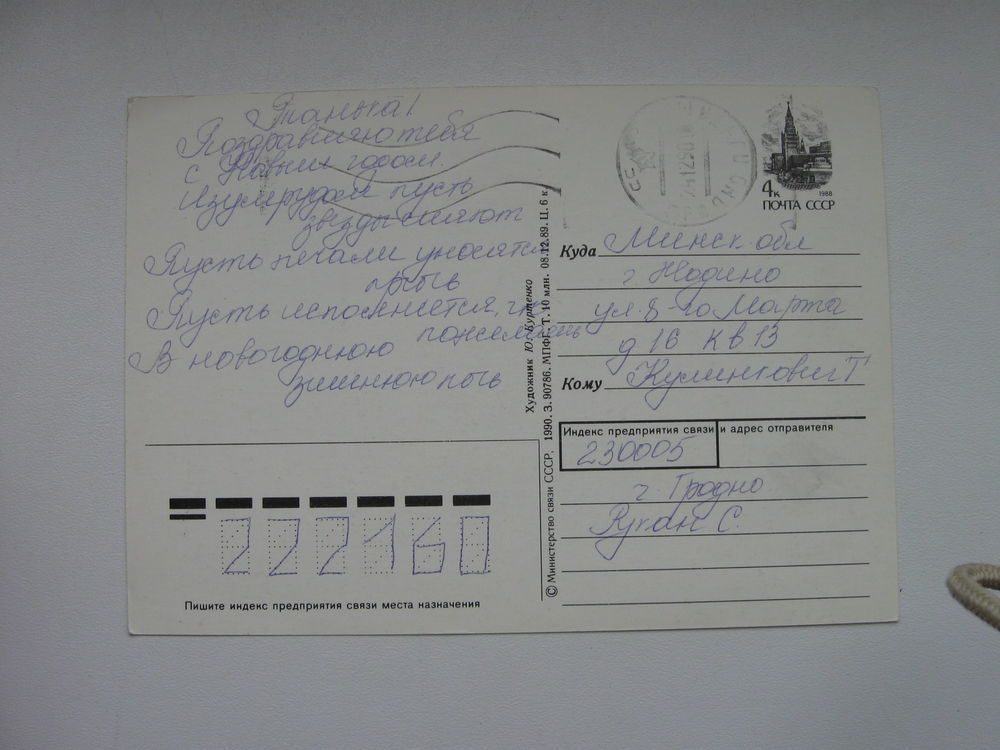 Танька!
Поздравляю тебя
с Новым годом.
Изумрудом пусть
звезды сияют
Пусть печали уносятся
прочь
Пусть исполнится, что
пожелаешь
В новогоднюю
зимнюю ночь
4к
1988
ПОЧТА СССР
Куда Минск. обл
г. Жодино
ул. 8-го Марта
д 16 кв 13
Кому Т
Индекс предприятия связи и адрес отправителя
230005
г. Гродно
С.
222160
Пишите индекс предприятия связи места назначения
Художник Ю. Куртенко
© Министерство связи СССР. 1990. З. 90786. МПФГ. Т. 10 млн. 08.12.89. Ц. 6 к.